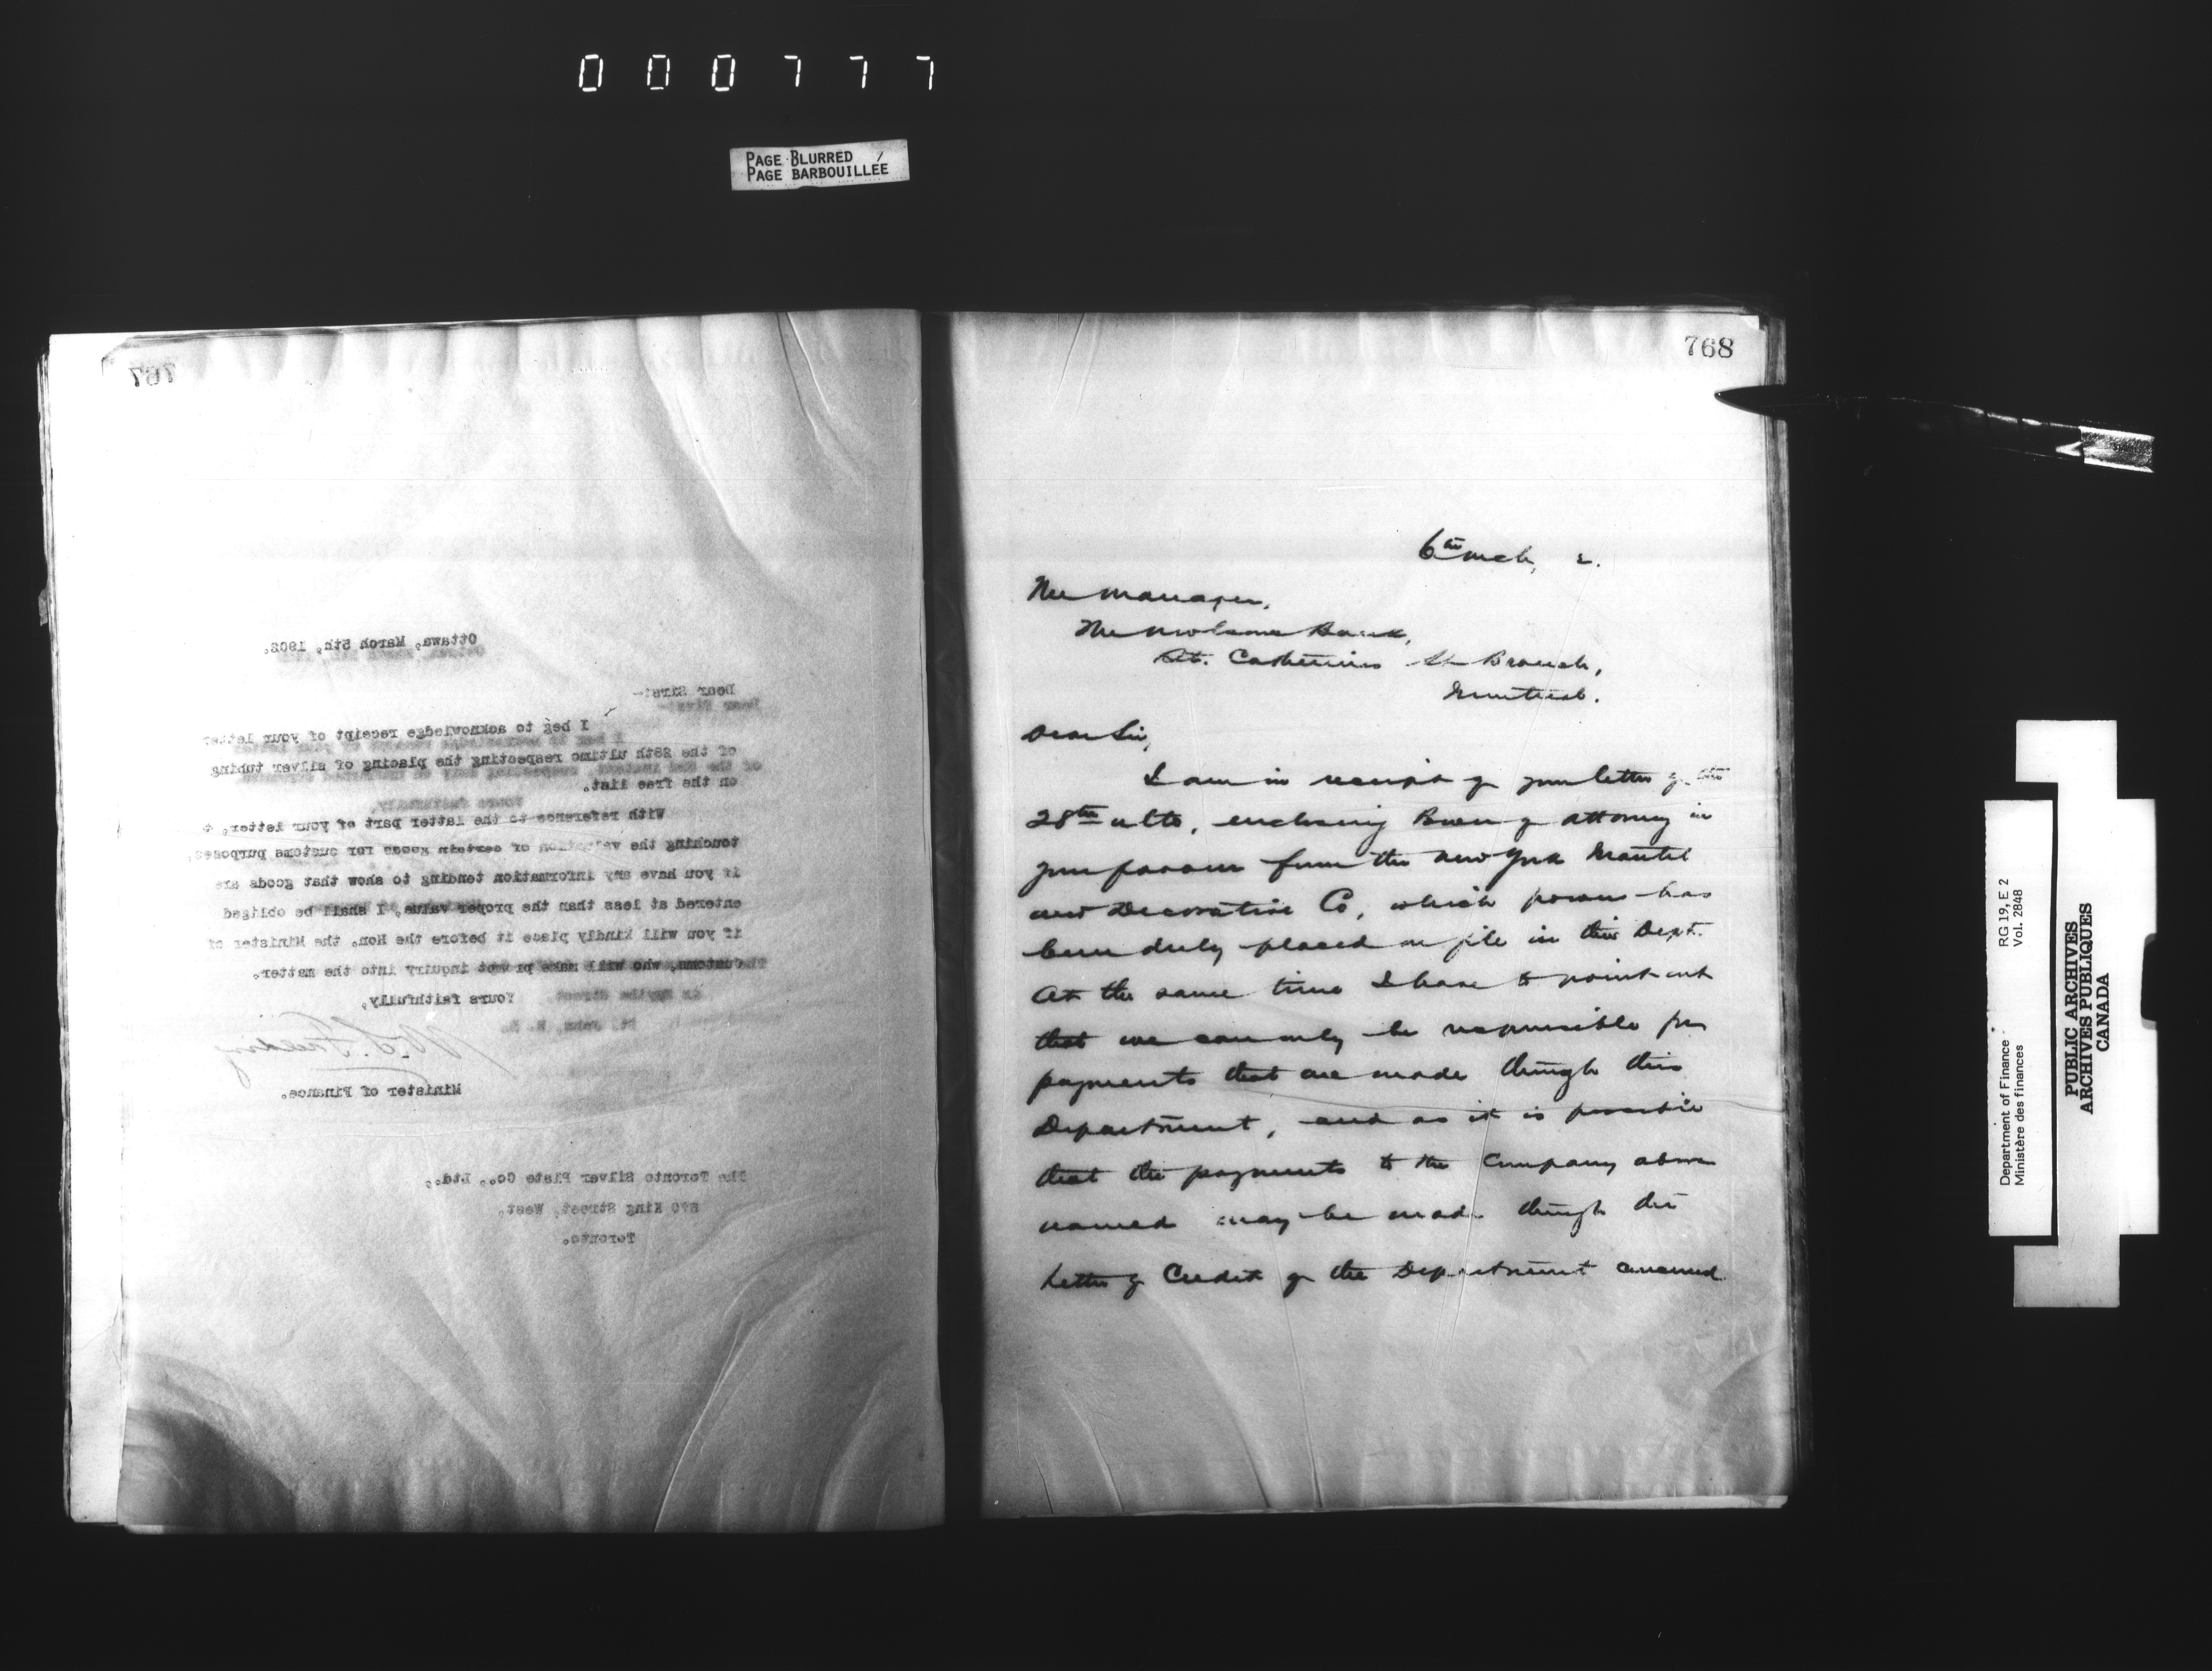 000777
PAGE BLURRED
PAGE BARBOUILLÉE
767
Ottawa, March 5th, 1902.
Dear Sirs:-
I beg to acknowledge receipt of your letter
of the 28th ultimo respecting the placing of silver tubing
on the free list.
With reference to the latter part of your letter,
touching the valuation of certain goods for customs purposes,
if you have any information tending to show that goods are
entered at less than the proper value, I shall be obliged
if you will kindly place it before the Hon. the Minister of
Customs, who will make prompt inquiry into the matter.
Yours faithfully,
W. S. Fielding
Minister of Finance.
The Toronto Silver Plate Co., Ltd.,
570 King Street, West,
Toronto.
768
6th Mch, 2.
The Manager,
The Molsons Bank,
St. Catherines St Branch,
Montreal.
Dear Sir,
I am in receipt of your letter of the
28th ulto, enclosing Power of attorney in
your favour from the New York Mantel
and Decorative Co, which power has
been duly placed on file in this Dept.
At the same time I have to point out
that we can only be responsible for
payments that are made through this
Department, and as it is possible
that the payments to the Company above
named may be made through the
Letter of Credit of the Department concerned
Department of Finance
Ministère des finances
RG 19, E 2
Vol. 2848
PUBLIC ARCHIVES
ARCHIVES PUBLIQUES
CANADA